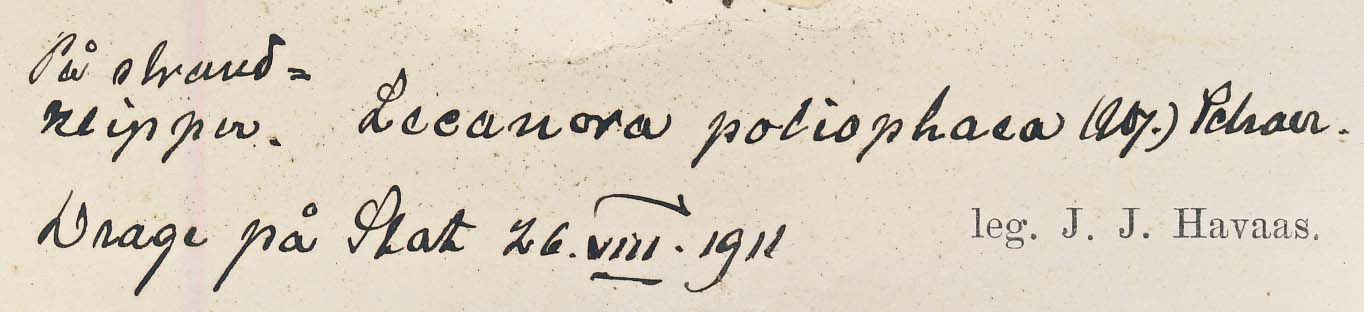 På strand=
klipper. Lecanora poliophaea (Wg.) Schaer.
Drage på Stat 26.VIII.1911 leg. J. J. Havaas.